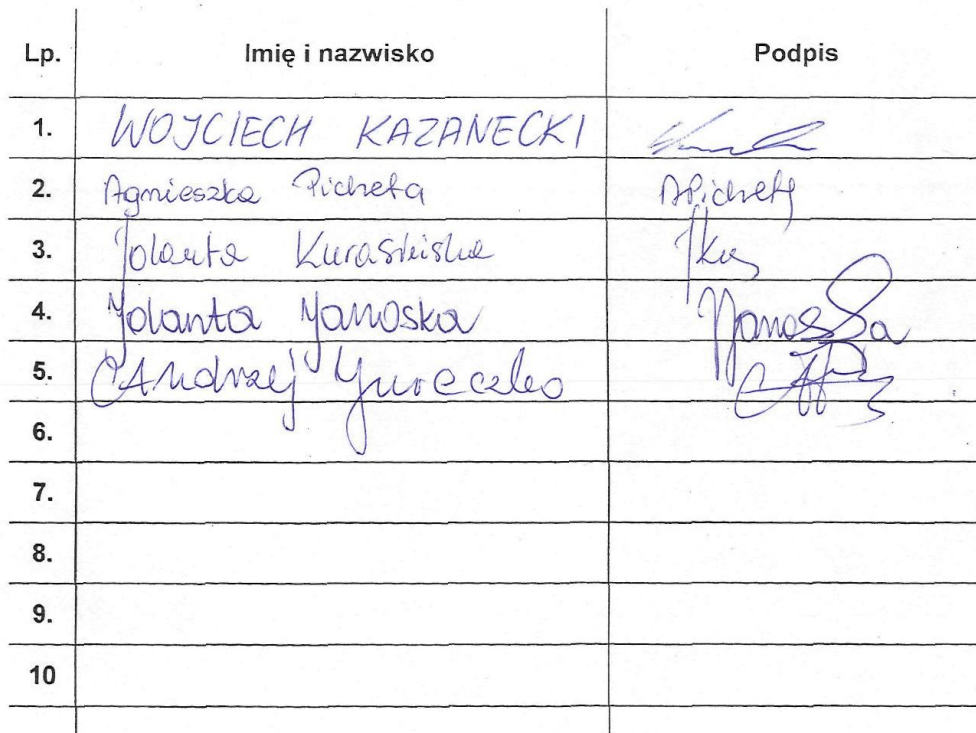 Lp. Imię i nazwisko Podpis
1. WOJCIECH KAZANECKI
2. Agnieszka Picheta APicheta
3. Jolanta
4. Jolanta Janoska Janoska
5. Andrzej Jureczko
6.
7.
8.
9.
10